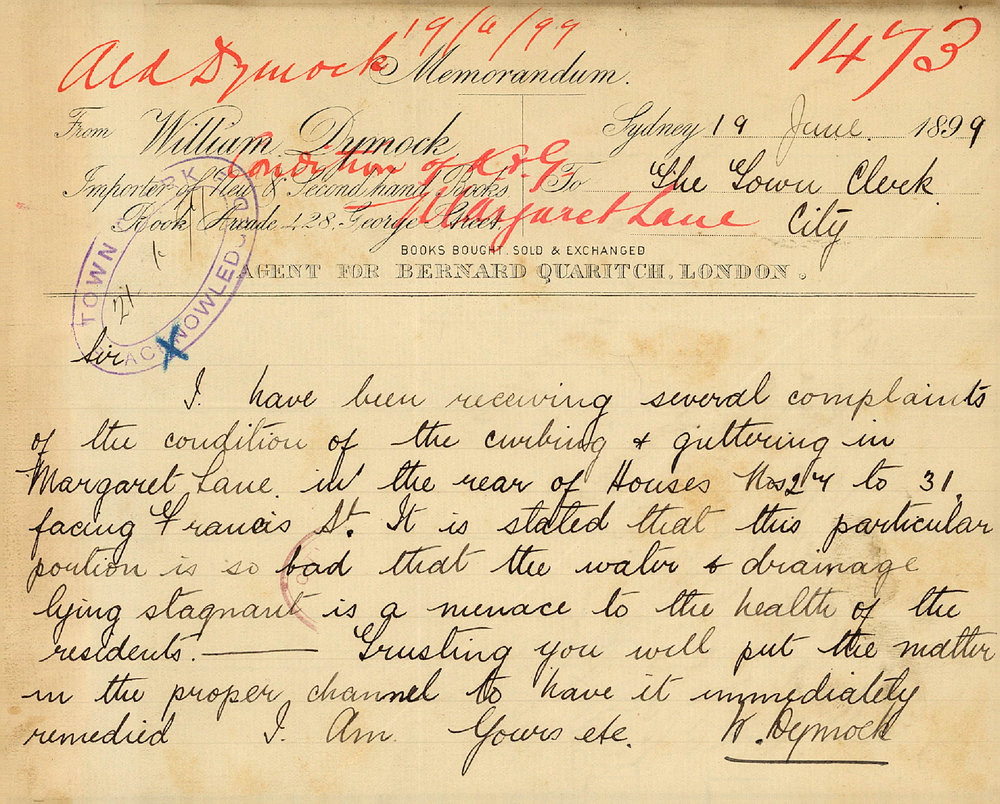 19/6/99
Ald Dymock
1473
Memorandum.
From William Dymock
Sydney 19 June 1899
Condition of K & G
Margaret Lane
Importer of New & Second hand Books
To The Town Clerk
Book Arcade 428 George Street,
City
BOOKS BOUGHT, SOLD & EXCHANGED
AGENT FOR BERNARD QUARITCH, LONDON.
TOWN
ACKNOWLEDGED
21
Sir
X
I have been receiving several complaints
of the condition of the curbing & guttering in
Margaret Lane. in the rear of Houses Nos 27 to 31.
facing Francis St. It is stated that this particular
portion is so bad that the water & drainage
lying stagnant is a menace to the health of the
residents. — Trusting you will put the matter
in the proper channel to have it immediately
remedied I. Am. Yours etc. W. Dymock